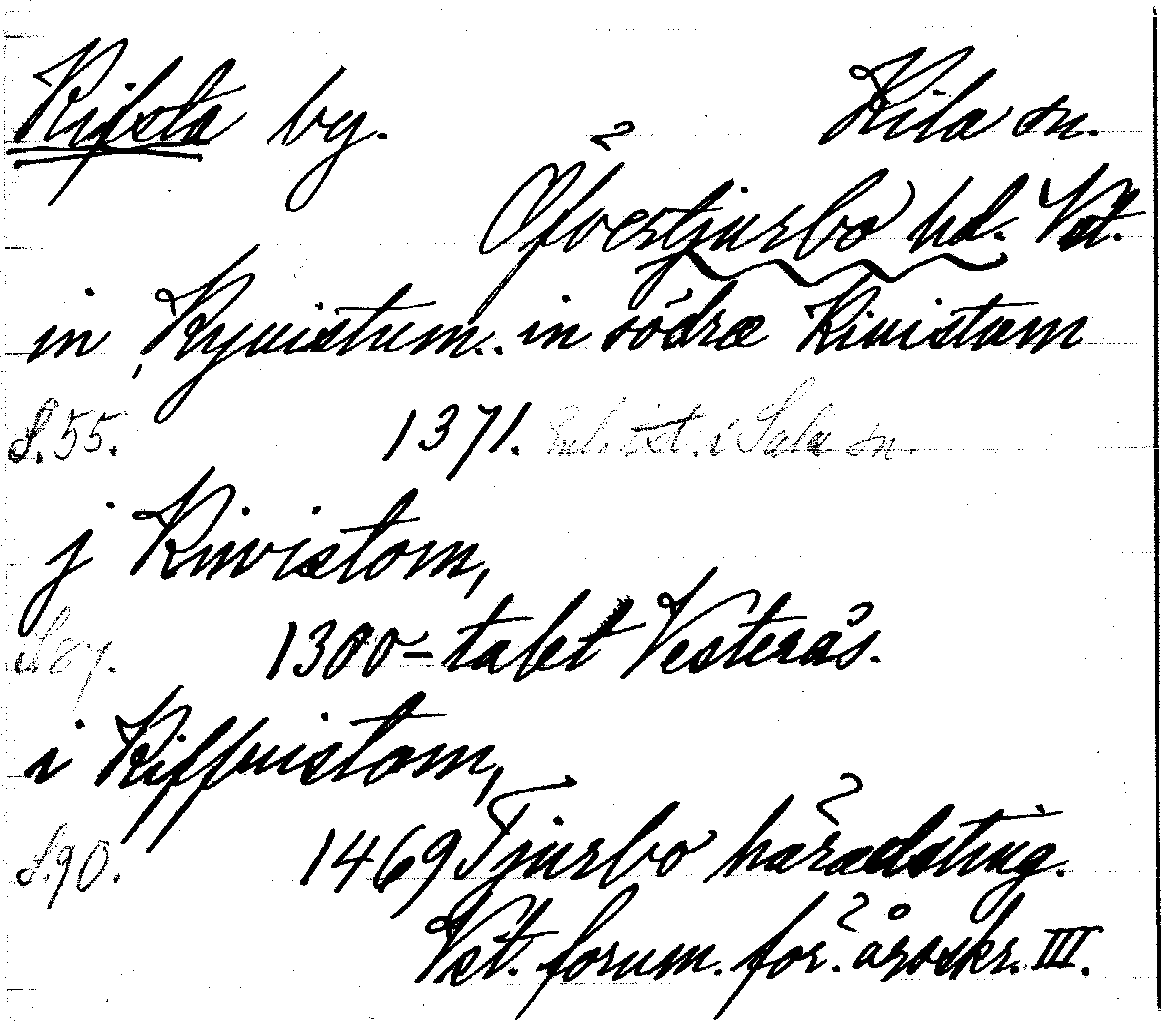 Kifsta by. Kila sn.
Öfvertjurbo hd. Vst.
in Kyuistum.. in södræ Kiuistum
S. 55. 1371. i Sala sn.
j Kiwistom,
1300-talet Vesterås.
i Kiffuistom,
S. 90. 1469 Tjurbo häradsting.
Vst. fornm. för. årsskr. III.